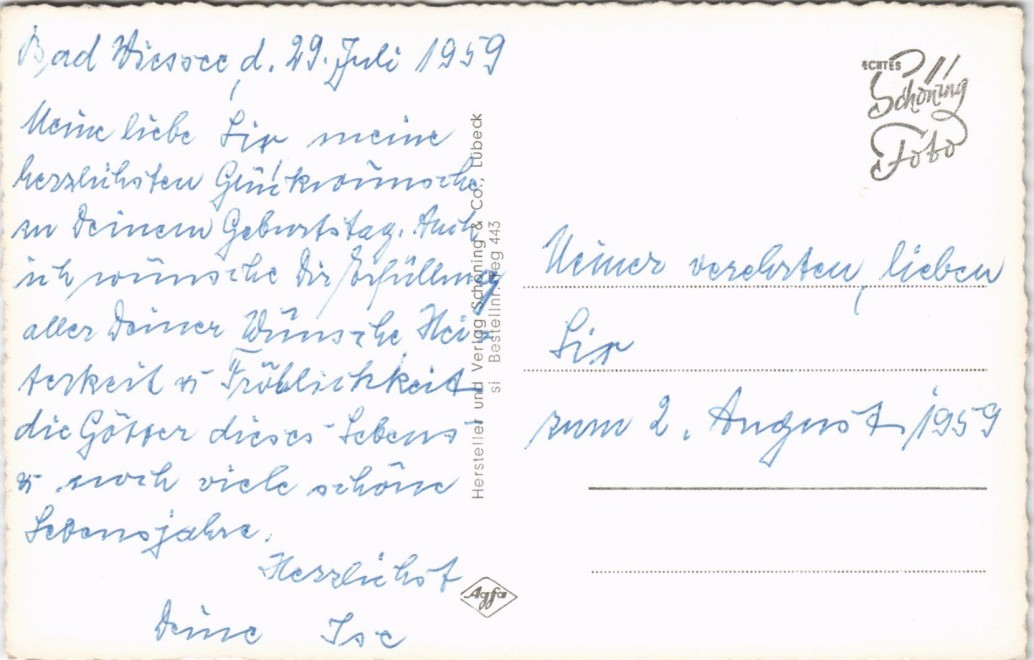 Bad Wiessee, d. 29. Juli 1959
Meine liebe meine
herzlichsten Glückwünsche
zu Deinem Geburtstag. Auch
ich wünsche Dir Erfüllung
aller Deiner Wünsche Hei-
terkeit u. Fröhlichkeit
die Götter dieses Lebens
u. noch viele schöne
Lebensjahre.
Herzlichst
Deine Ise
Hersteller und Verlag Schöning & Co., Lübeck
si Bestellnr. 443
Agfa
ECHTES
Schöning
Foto
Meiner verehrten, lieben
zum 2. August 1959